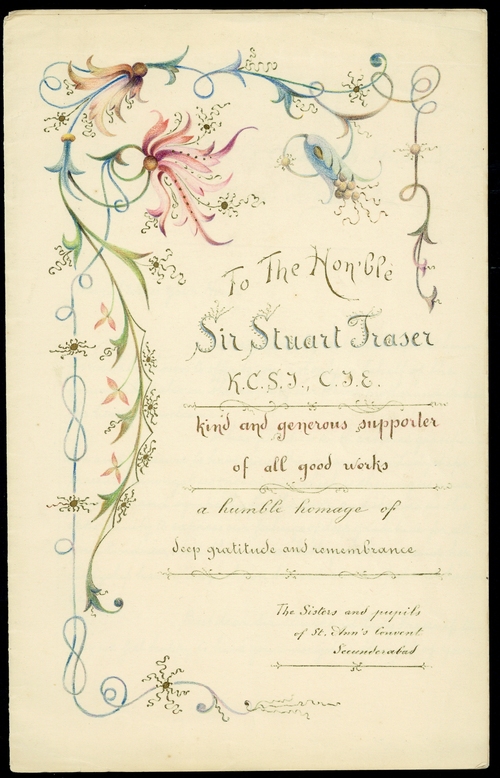 To The Hon'ble
Sir Stuart Fraser
K.C.S.I., C.I.E.
kind and generous supporter
of all good works
a humble homage of
deep gratitude and remembrance
The Sisters and pupils
of St. Ann's Convent
Secunderabad